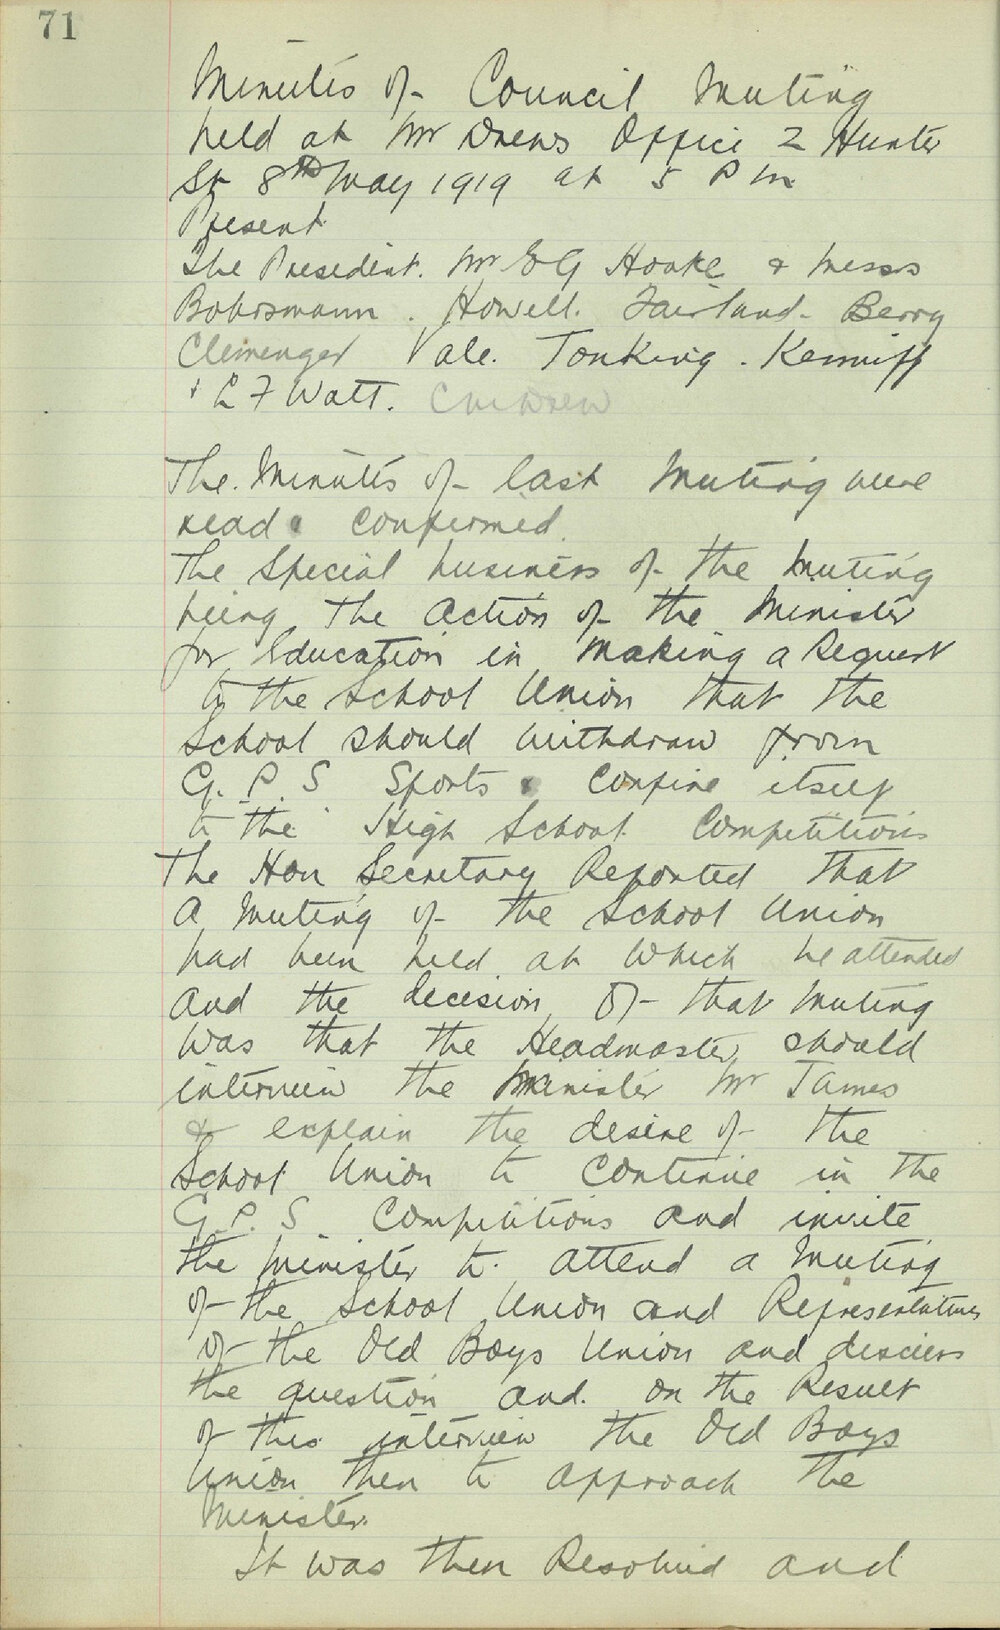 71
Minutes of Council Meeting
held at Mr Drews Office 2 Hunter
St 8th May 1919 at 5 P m
Present
The President. Mr E G Hooke & Messrs
Bohrsmann. Howell. Fairland. Berry
Clemenger Vale. Tonking. Kenniff
& L F Watt.
The Minutes of last Meeting were
read & confirmed.
The Special business of the Meeting
being the Action of the Minister
for Education in Making a Request
to the School Union that the
School should withdraw from
G. P. S Sports & confine itself
to the High School Competitions
The Hon Secretary Reported that
A Meeting of the School Union
had been held at Which he attended
and the decision of that Meeting
was that the Headmaster should
interview the Minister Mr James
& explain the desire of the
School Union to continue in the
G. P. S Competitions and invite
the Minister to attend a Meeting
of the School Union and Representatives
of the Old Boys Union and discuss
the question and on the Result
of this interview the Old Boys
Union then to approach the
Minister.
It was then Resolved and